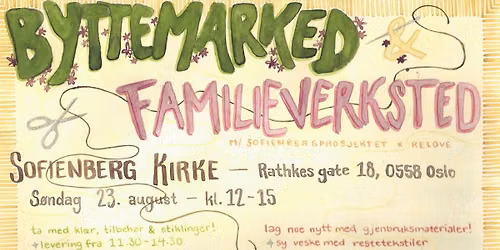 BYTTEMARKED
&
FAMILIEVERKSTED
M/ SOFIENBERGPROSJEKTET & RELOVE
SOFIENBERG KIRKE — Rathkes gate 18, 0558 Oslo
Søndag 23. august — kl. 12-15
ta med klær, tilbehør & stiklinger!
+levering fra 11.30-14.30
lag noe nytt med gjenbruksmaterialer!
+sy veske med restetekstiler